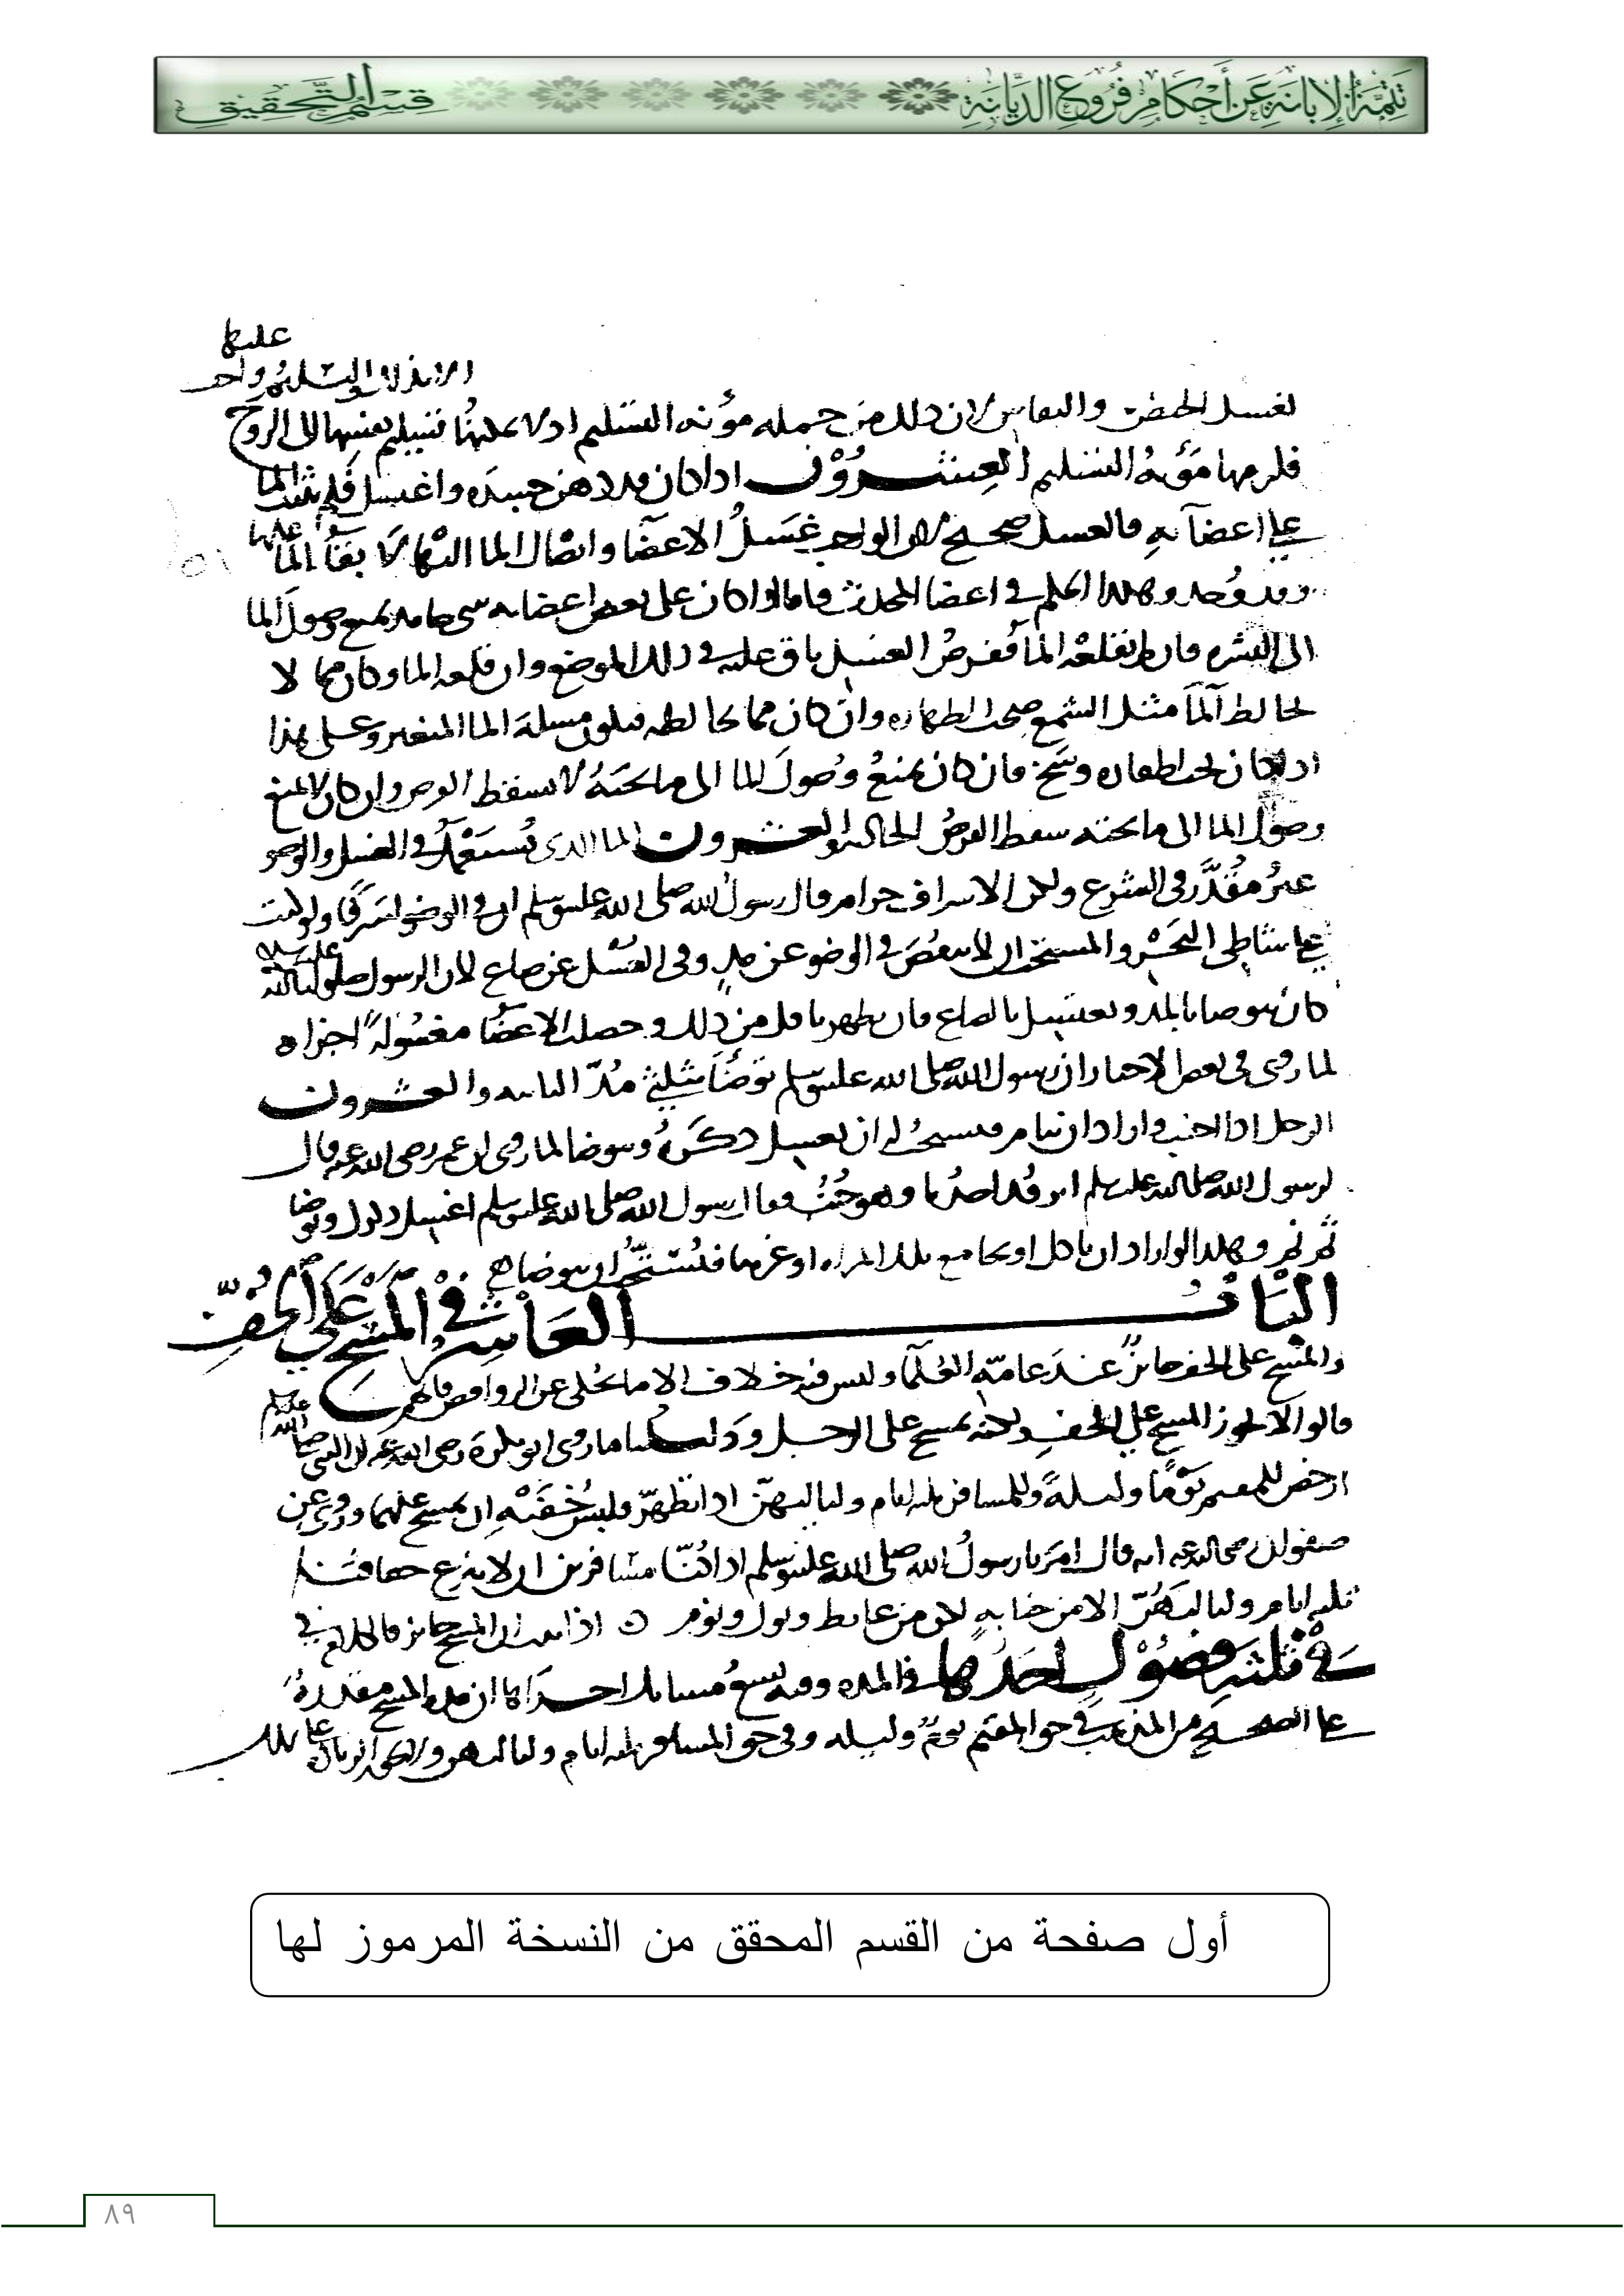 تتمة الإبانة عن أحكام فروع الديانة
قسم التحقيق
عليها
لغسل الحيض والنفاس لان ذلك من جمله مؤنه التسليم اذ لا يمكنها تسليم نفسها الى الزوج
فلزمها مؤنة التسليم العشرون اذا كان قد دهن جسده واغتسل فلم يثبت الما
على اعضآئه فالغسل صحيح لان الواجب غسل الاعضا وايصال الما اليها لا بقآ الما عليها
وقد وجد وهكذا الحكم في اعضا المحدث فاما لو كان على بعض اعضايه شى جامد يمنع وصول الما
الى البشره فان لم تقلعه الما ففرض الغسل باق عليه في ذلك الموضع وان قلعه الما وكان مما لا
يخالط آلمآ مثل الشمع صحت الطهاره وان كان مما يخالطه فيكون مسلة الما المتغير وعلى هذا
اذا كان تحت اظفاره وسخ فان كان يمنع وصول الما الى ما تحته لا يسقط الفرض وان كان لا يمنع
وصول الما الى ما تحته سقط الفرض الحاديه والعشرون الما الذى يستعمل في الغسل والوضو
غير مقدر في الشرع ولكن الاسراف حرام قال رسول الله صلى الله عليه وسلم ان في الوضو لسرفا ولو كنت
على شاطى البحر والمستحب ان لا ينقص في الوضو عن مد وفي الغسل عن صاع لان الرسول صلوات الله عليه
كان يتوضا بالمد ويغتسل بالصاع فان تطهر باقل من ذلك وحصلت الاعضا مغسولة اجزاه
لما روى في بعض الاخبار ان رسول الله صلى الله عليه وسلم توضا بثلثي مد الثانيه والعشرون
الرجل اذا اجنب واراد ان ينام فيستحب له ان يغسل ذكره ويتوضا لما روى ان عمر رضى الله عنه قال
لرسول الله صلى الله عليه وسلم ايرقد احدنا وهو جنب فقال رسول الله صلى الله عليه وسلم اغسل ذكرك وتوضا
ثم نم وهكذا لو اراد ان ياكل او يجامع تلك المراه او غيرها فيستحب ان يتوضا
الباب العاشر في المسح على الخف
والمسح على الخف جائز عند عامة العلمآ وليس فيه خلاف الا ما يحكى عن الروافض فانهم
قالوا لا يجوز المسح على الخف ولكنه يمسح على الرجل ودليلنا ما روى ابو بكرة رضى الله عنه ان النبي صلى الله عليه وسلم
ارخص للمقيم يوما وليلة وللمسافر ثلثه ايام ولياليهن اذا تطهر ولبس خفيه ان يمسح عليهما وروى عن
صفوان رضى الله عنه انه قال امرنا رسول الله صلى الله عليه وسلم اذا كنا مسافرين ان لا ننزع خفافنا
ثلثه ايام ولياليهن الا من جنابه لكن من غايط وبول ونوم ه اذا ثبت ان المسح جائز فالكلام في
في ثلثة فصول احدها في المده وفيه تسع مسايل احداها ان مدة المسح مقدرة
على الصحيح من المذهب في حق المقيم يوم وليله وفي حق المسافر ثلثه ايام ولياليهن
أول صفحة من القسم المحقق من النسخة المرموز لها
٨٩